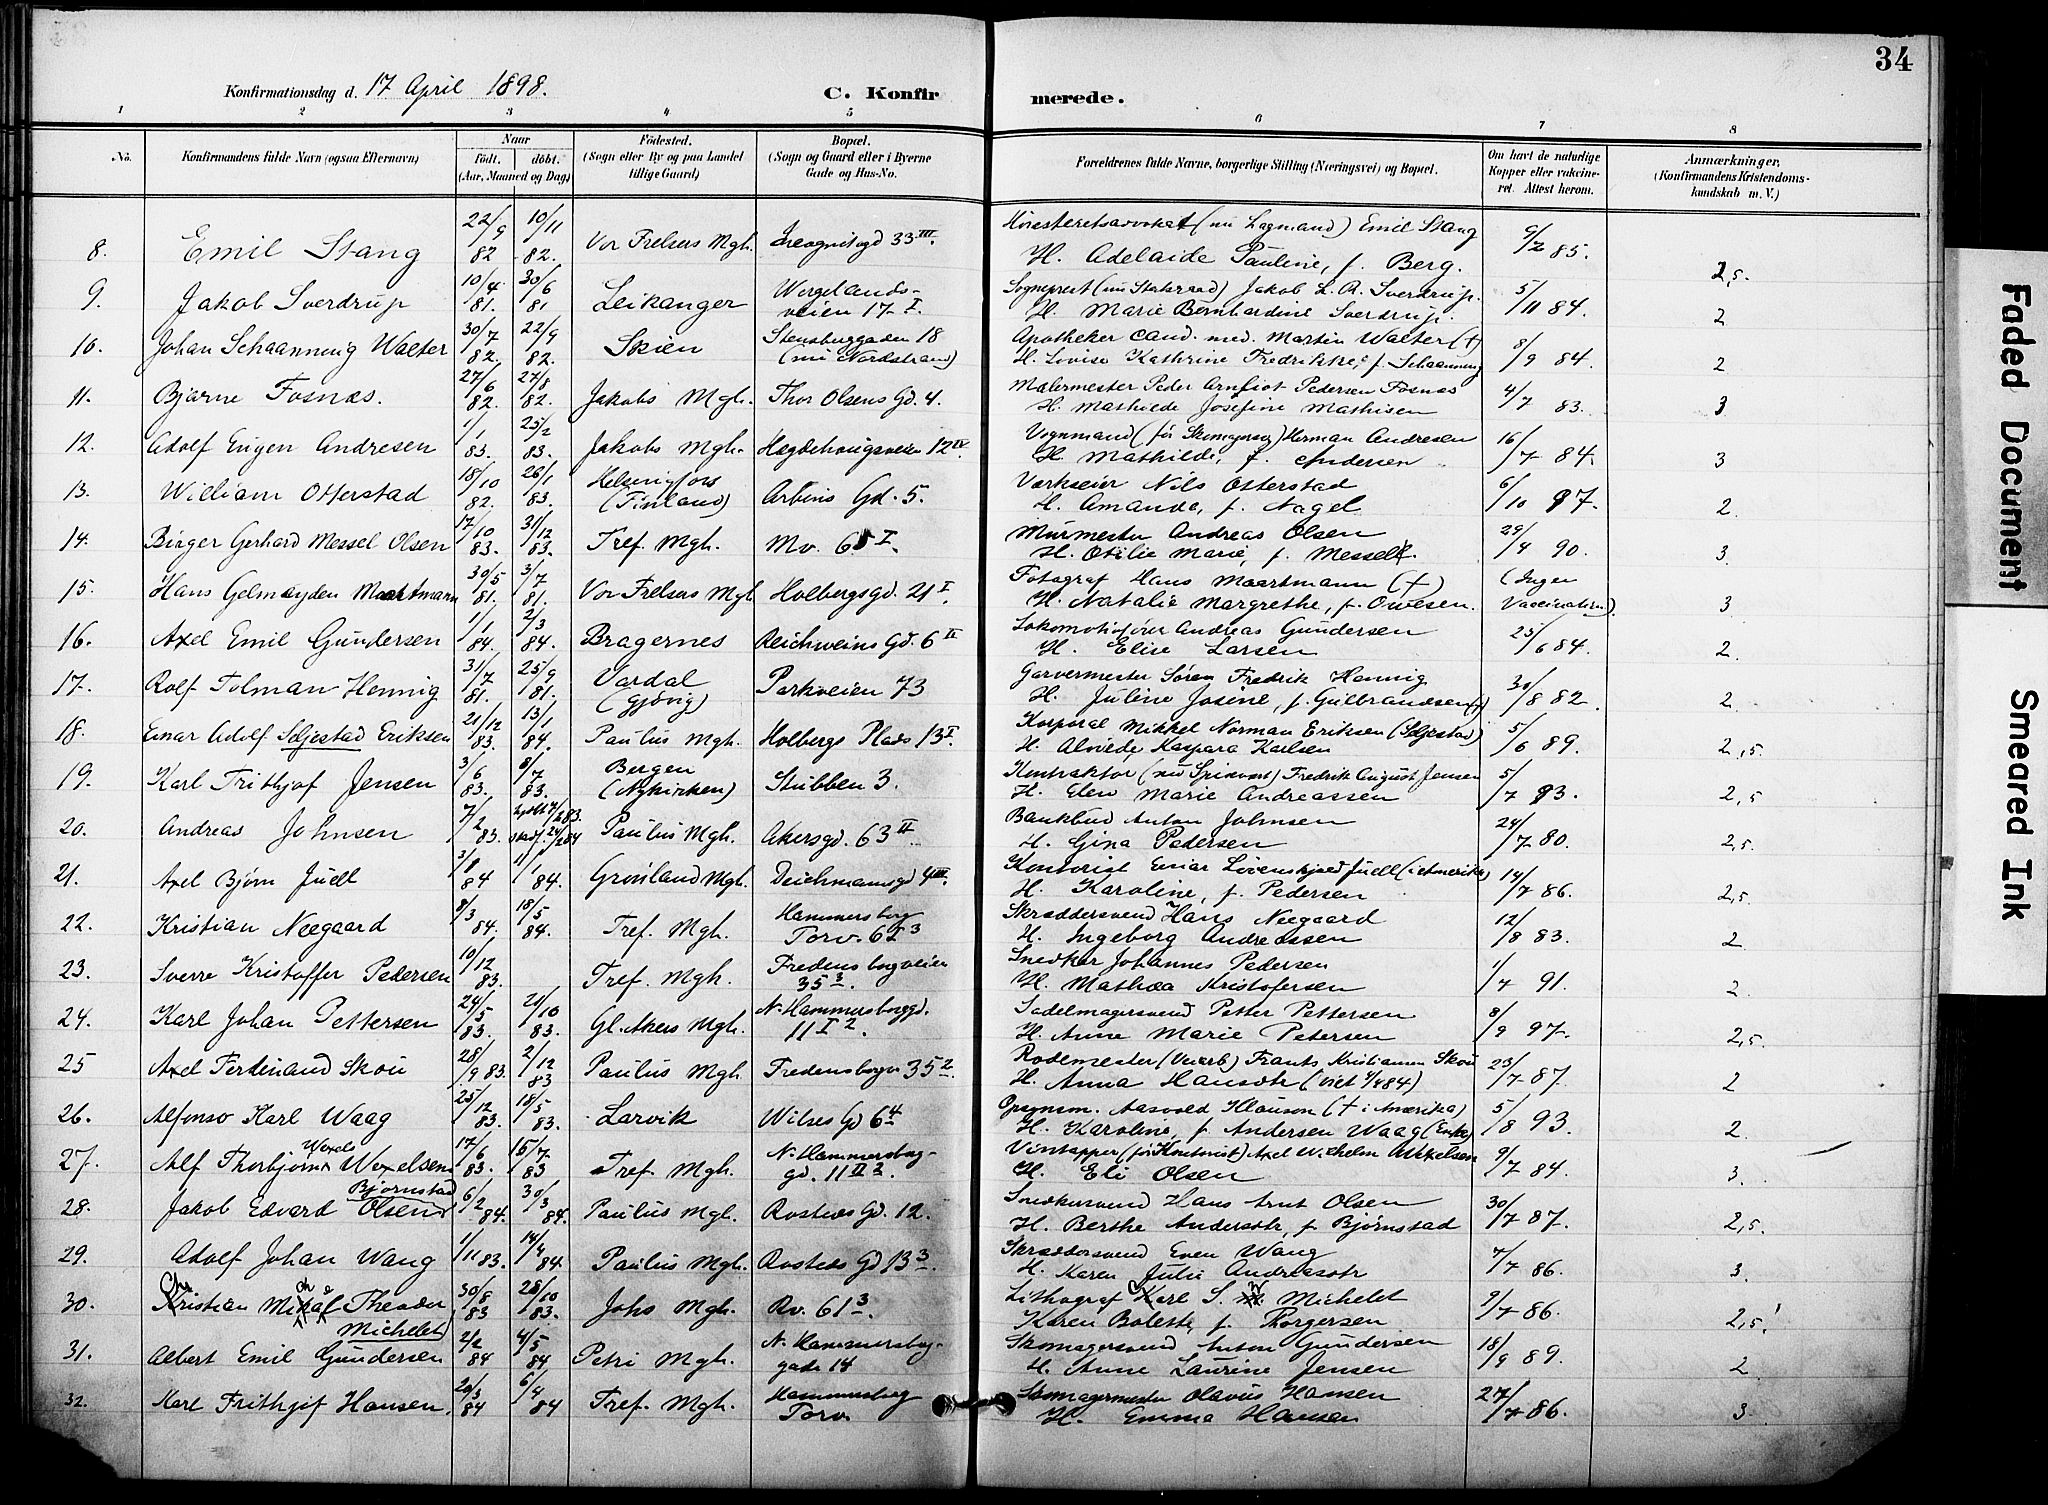 34
Konfirmationsdag d. 17 April 1898.
C. Konfirmerede.
1 2 3 4 5 6 7 8
No.
Konfirmandens fulde Navn (ogsaa Efternavn)
Naar
født. døbt.
(Aar, Maaned og Dag)
Fødested.
(Sogn eller By og paa Landet
tillige Gaard)
Bopæl.
(Sogn og Gaard eller i Byerne
Gade og Hus-No.
Forældrenes fulde Navne, borgerlige Stilling (Næringsvei) og Bopæl.
Om havt de naturlige
Kopper eller vakcine-
ret. Attest herom.
Anmærkninger,
(Konfirmandens Kristendoms-
kundskab m. V.)
8. Emil Stang 22/9 82 10/11 82. Vor Frelsers Mgh. Incognitogd 33 III. Høiesteretsadvokat (nu Lagmand) Emil Stang
H. Adelaide Pauline, f. Berg. 9/2 85. 2,5.
9. Jakob Sverdrup 10/4 81. 30/6 81 Leikanger Wergelands-
veien 17 I. Sogneprest (nu Statsraad) Jakob L. R. Sverdrup.
H. Marie Bernhardine Sverdrup. 5/11 84. 2
10. Johan Schaanning Walter 30/7 82. 22/9 82. Skien Stensbuggaden 18
(nu Nordstrand) Apotheker cand. med. Martin Walter (†)
H. Lovise Kathrine Fredrikke, f. Schaanning 8/9 84. 2
11. Bjarne Fosnæs. 27/6 82. 27/8 82. Jakobs Mgh. Thor Olsens Gd. 4. Malermester Peder Arnfiot Pedersen Fosnæs
H. Mathilde Josefine Mathisen 4/7 83. 3
12. Adolf Eugen Andresen 1/1 83. 25/2 83. Jakobs Mgh. Hægdehaugsveien 12 IV. Vognmand (før Skomagersv) Herman Andresen
H. Mathilde, f. Andersen 16/7 84. 3
13. William Otterstad 18/10 82. 26/1 83. Helsingfors
(Finland) Arbins Gd. 5. Værkseier Nils Otterstad
H. Amanda, f. Nagel 6/10 87. 2.
14. Birger Gerhard Messel Olsen 17/10 83. 31/12 83. Tref. Mgh. Mv. 65 I. Murmester Andreas Olsen
H. Otilie Marie, f. Messel. 29/4 90. 3.
15. Hans Gelmeyden Maartmann 30/5 81. 3/7 81. Vor Frelsers Mgh Holbergsgd. 21 I. Fotograf Hans Maartmann (†)
H. Natalie Margrethe, f. Owesen. (Ingen
Vaccination). 3
16. Axel Emil Gundersen 1/1 84. 2/3 84. Bragernes Reichweins Gd. 6 II Lokomotivfører Andreas Gundersen
H. Elise Larsen 25/6 84. 2.
17. Rolf Tolman Hennig 31/7 81. 25/9 81. Vardal
(Gjøvig) Parkveien 73 Garvermester Søren Fredrik Hennig
H. Juline Josine, f. Gulbrandsen (†) 30/8 82. 2.
18. Einar Adolf Seljestad Eriksen 21/12 83. 13/1 84. Paulus Mgh. Holbergs Plads 13 I. Korporal Mikkel Norman Eriksen (Seljestad)
H. Alvede Kaspara Karlsen 5/6 89. 2,5.
19. Karl Frithjof Jensen 3/6 83. 8/7 83. Bergen
(Nykirken) Stubben 3. Kontraktør (nu Spisevært) Fredrik August Jensen
H. Elen Marie Andreassen 5/7 93. 2,5
20. Andreas Johnsen 7/2 83. Paulus Mgh. Akersgd. 63 II Bankbud Anton Johnsen
H. Gina Pedersen 24/7 80. 2,5.
21. Axel Bjørn Juell 3/1 84 1/1 84. Grønland Mgh. Deichmansgd 4 III. Kontorist Einar Løvenskjold Juell (i Amerika)
H. Karoline, f. Pedersen 14/7 86. 2,5.
22. Kristian Neegaard 8/3 84. 18/5 84. Tref. Mgh. Hammersborg
Torv. 6 I 3 Skræddersvend Hans Neegaard
H. Ingeborg Andreassen 12/8 83. 2
23. Sverre Kristoffer Pedersen 10/12 83. Tref. Mgh. Fredensborgveien
35 3. Snedker Johannes Pedersen
H. Mathea Kristofersen 1/7 91. 2.
24. Karl Johan Pettersen 24/5 83. 21/10 83. Gl. Akers Mgh. N. Hammersborggd.
11 I 2. Sadelmagersvend Petter Pettersen
H. Anne Marie Petersen 8/9 97. 2,5.
25 Axel Ferdinand Skou 28/9 83. 2/12 83 Paulus Mgh Fredensborgv 35 2. Rodemester Frants Kristiansen Skou
H. Anna Hansdtr 23/7 87. 2
26. Alfonso Karl Waag 25/12 83. 18/5 83. Larvik Wilses Gd 6 4 Opsynsm. Aasvold Klauson († i Amerika)
H. Karoline, f. Andersen Waag (Enke) 5/8 93. 2.
27. Alf Thorbjørn Wexels Wexelsen 17/6 83. 15/7 83 Tref. Mgh. N. Hammersborg-
gd. 11 II 2. Vintapper (før Kontorist) Axel Wilhelm Wexelsen
H. Eli Olsen 9/7 84. 3.
28. Jakob Edvard Olsen Bjørnstad 6/2 84. 30/3 84. Paulus Mgh. Rosteds Gd. 12. Snedkersvend Hans Arnt Olsen
H. Berthe Andersdtr, f. Bjørnstad 30/7 87. 2,5.
29. Adolf Johan Wang 1/11 83. 14/4 84. Paulus Mgh. Rosteds Gd 13 3. Skræddersvend Even Wang
H. Karen Julie Andreasdtr 7/7 86. 3.
30. Christian Michael Theodor
Michelet 30/8 83 28/10 83. Johs Mgh. Rv. 61 3 Lithograf Carl S. W. Michelet
Karen Bolette, f. Thorgersen 9/7 86. 2,5.!
31. Albert Emil Gundersen 2/2 84 4/5 84 Petri Mgh. N. Hammersborg-
gade 14 Skomagersvend Anton Gundersen
H. Anne Laurine Jensen 18/9 89. 2
32. Karl Frithjof Hansen. 20/3 84 6/4 84 Tref. Mgh. Hammersborg
Torv. Skomagermester Olavus Hansen
H. Emma Hansen 27/7 86. 3.
Faded Document
Smeared Ink